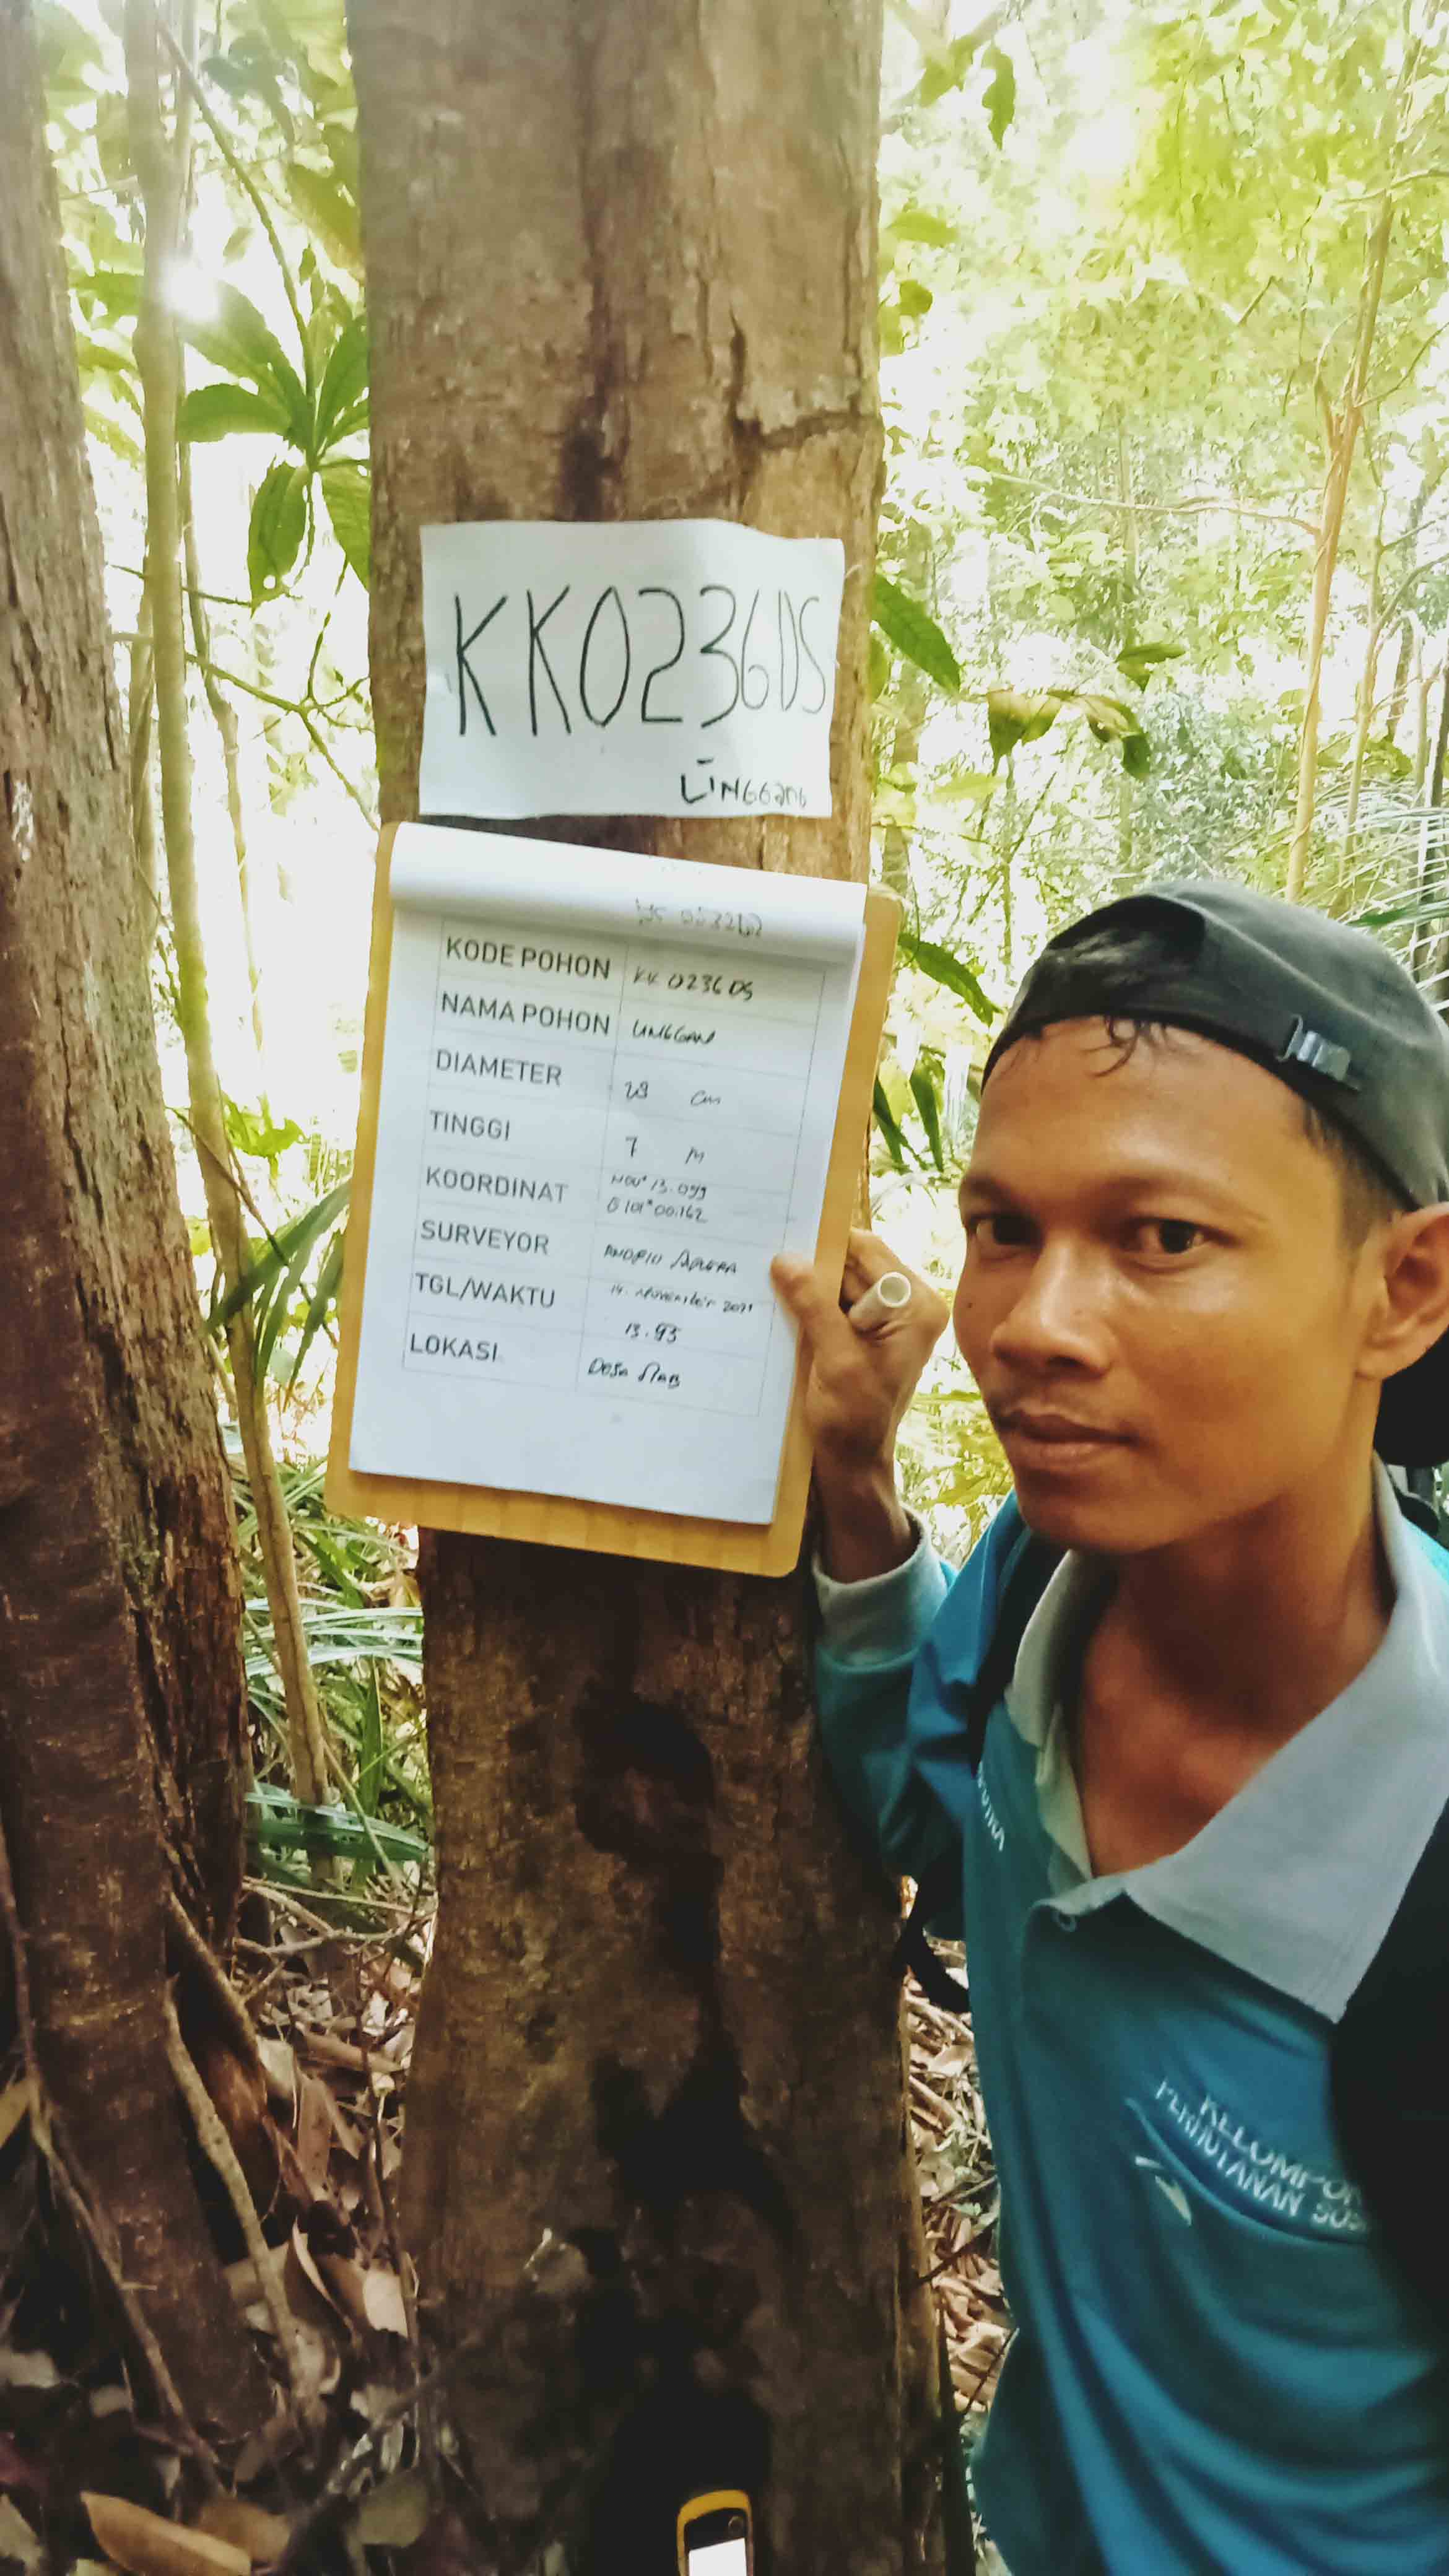 KK0236DS
LINGGANG
KODE POHON KK 0236 DS
NAMA POHON LINGGAN
DIAMETER 28 cm
TINGGI 7 M
KOORDINAT 13.099
101°00.162
SURVEYOR
TGL/WAKTU 14 November 2021
13.43
LOKASI Desa
KELOMPOK
PERHUTANAN SOS